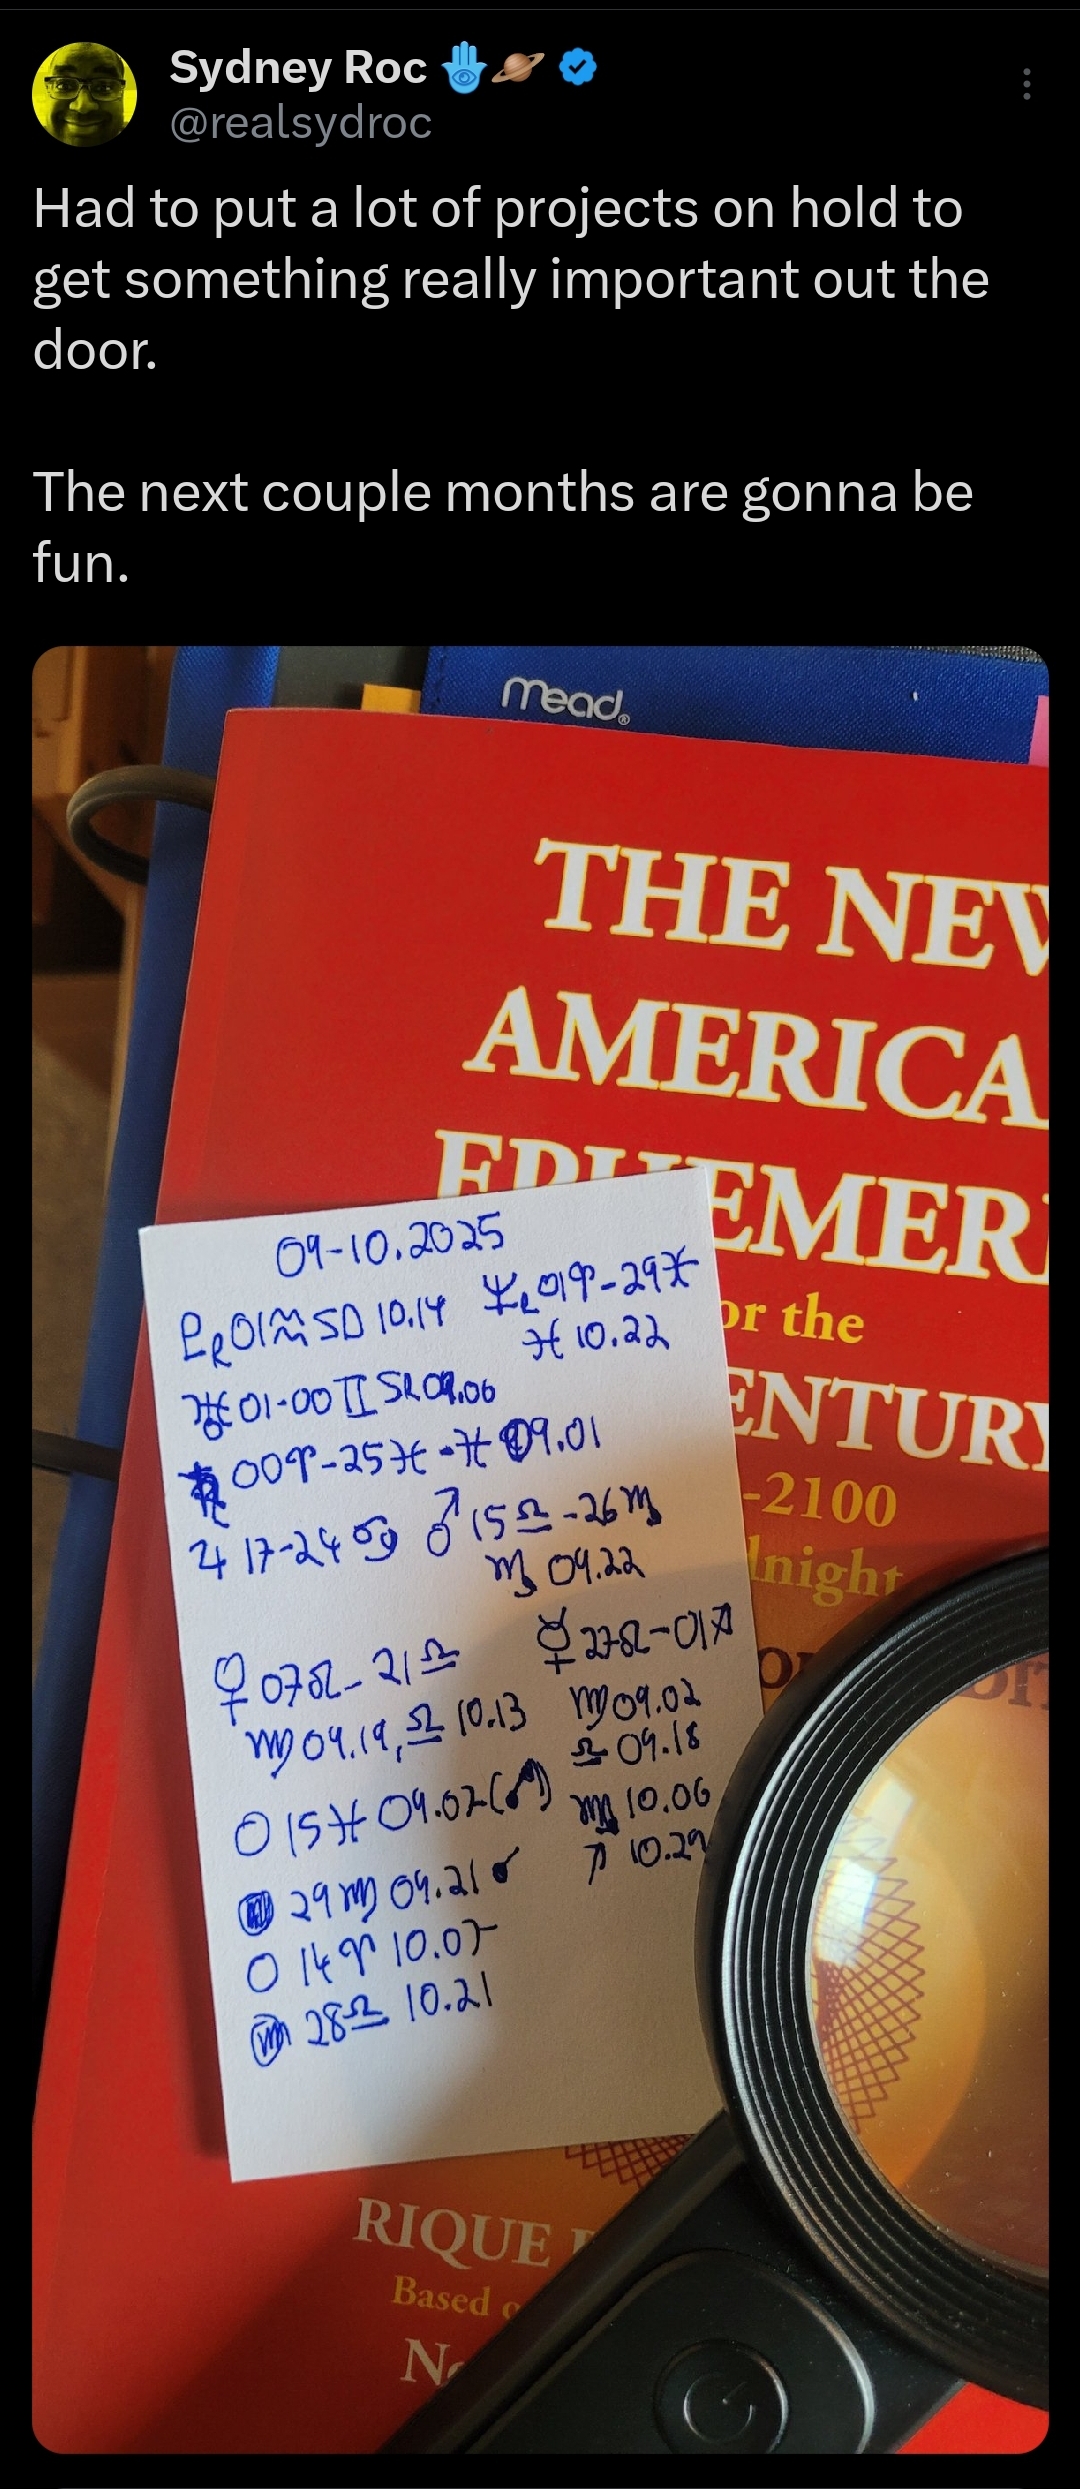 Sydney Roc 🪬🪐
@realsydroc
Had to put a lot of projects on hold to
get something really important out the
door.
The next couple months are gonna be
fun.
Mead®
THE NEW
AMERICA
EPHEMERI
or the
ENTURY
-2100
dnight
09-10.2025
♇R 01♒ SD 10.14
♆R 01♈-29♓
♓ 10.22
♅ 01-00 ♊ SR 09.06
♄ 00♈-25♓ - ♓ 09.01
♃ 17-24 ♋
♂ 15♎-26♏
♏ 09.22
♀ 07♌-21♎
♍ 09.19, ♎ 10.13
☿ 27♌-01♐
♍ 09.02
♎ 09.18
♏ 10.06
♐ 10.29
○ 15♓ 09.07 (☍)
29♍ 09.21
○ 14♈ 10.07
28♎ 10.21
RIQUE
Based o